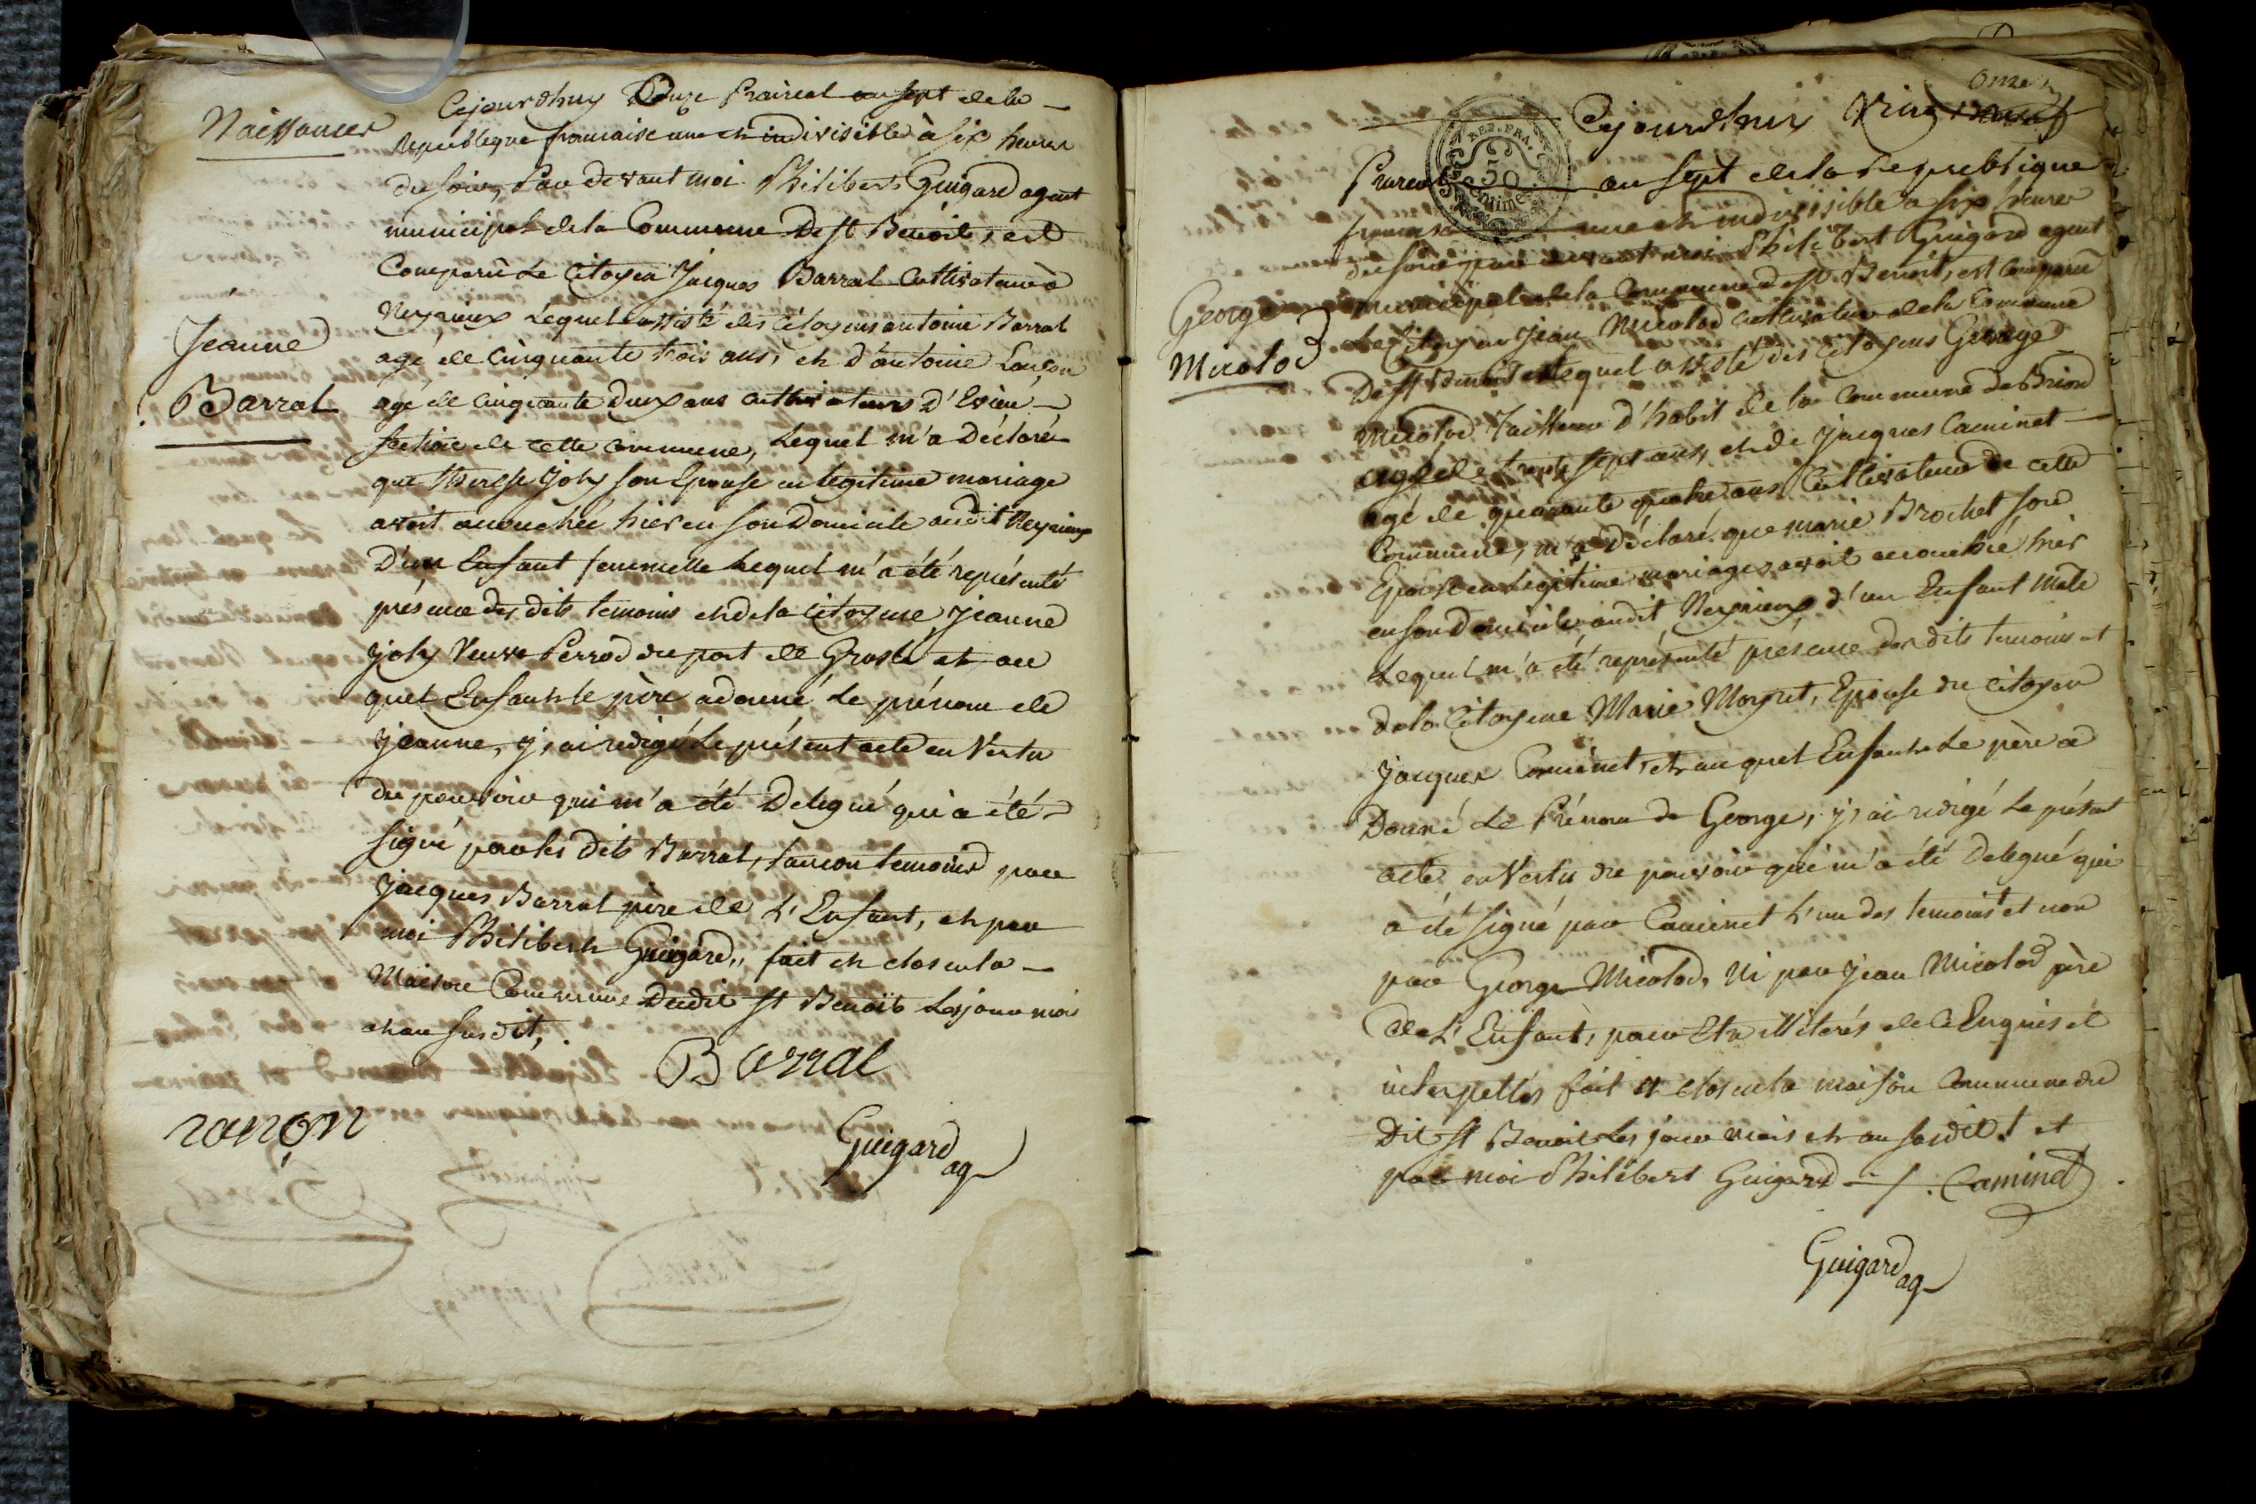 Naissances
Cejourdhuy Douze Prairéal an sept de la
Republique francaise une et indivisible à six heures
du soir, Par devant moi Philibert Guigard agent
municipal de la Commune De st Benoît, est
Comparû Le Citoyen Jacques Barral Cultivateur à
Neyrieux Lequel assisté des Citoyens antoine Barral
agé de Cinquante trois ans, et d'antoine Lançon
agé de cinquante deux ans cultivateurs D'Evieu
Section de cette commune, Lequel m'a Déclaré
que therese Joly son Epouse en legitime mariage
avoit accouchée hier en son Domicile audit Neyrieux
D'un Enfant femmelle Lequel m'a été représenté
présence des dits temoins et de la Citoyene Jeanne
Joly Veuve Perrod du port de Groslé et au
quel Enfant le père a donné Le prénom de
Jeanne, j'ai redigé Le présent acte en Vertu
du pouvoir qui m'a été Delegué qui a été
signé par les dits Barral, Lancon temoins par
Jacques Barral père de L'Enfant, et par
moi Philibert Guigard,, fait et clos en la
Maison Commune Dudit st Benoit Les jour mois
et an susdit,
Jeanne
Barral
Barral
rançon
Guigard ag
onze
Cejourdhuy Vingt neuf
Prairéal an sept de la republique
francaise une et indivisible a six heures
du soir par devant moi Philibert Guigard agent
municipal de la Commune de st Benoît, est comparû
Le Citoyen Jean Micolod cultivateur de la Commune
De st Benoit Lequel assisté des Citoyens George
Micolod Tailleur d'habit de la commune de Briord
agé de trente sept ans, et de Jacques Caminet
agé de quarante quatre ans Cultivateur de cette
Commune, m'a Déclaré que marie Brochet son
Epouse en Legitime mariage avoit accouchée hier
en son Domicile audit Neyrieux d'un Enfant Male
Lequel m'a été représenté présence des dits temoins et
de la Citoyene Marie Moyret, Epouse du Citoyen
Jacques Caminet, et au quel Enfant Le père a
Donné Le Prénom de George, j'ai redigé Le présent
acte en Vertu du pouvoir qui m'a été Delegué qui
a été signé par Caminet L'un des temoins et non
par George Micolod, Ni par Jean Micolod père
de L'Enfant, pour Etre illiterés de ce Enquis et
interpellés fait et clos en la maison Commune du
Dit st Benoit Les jour mois et an susdit et
par moi Philibert Guigard J. Caminet
George
Micolod
REP. FRA.
50
Centimes
Guigard ag